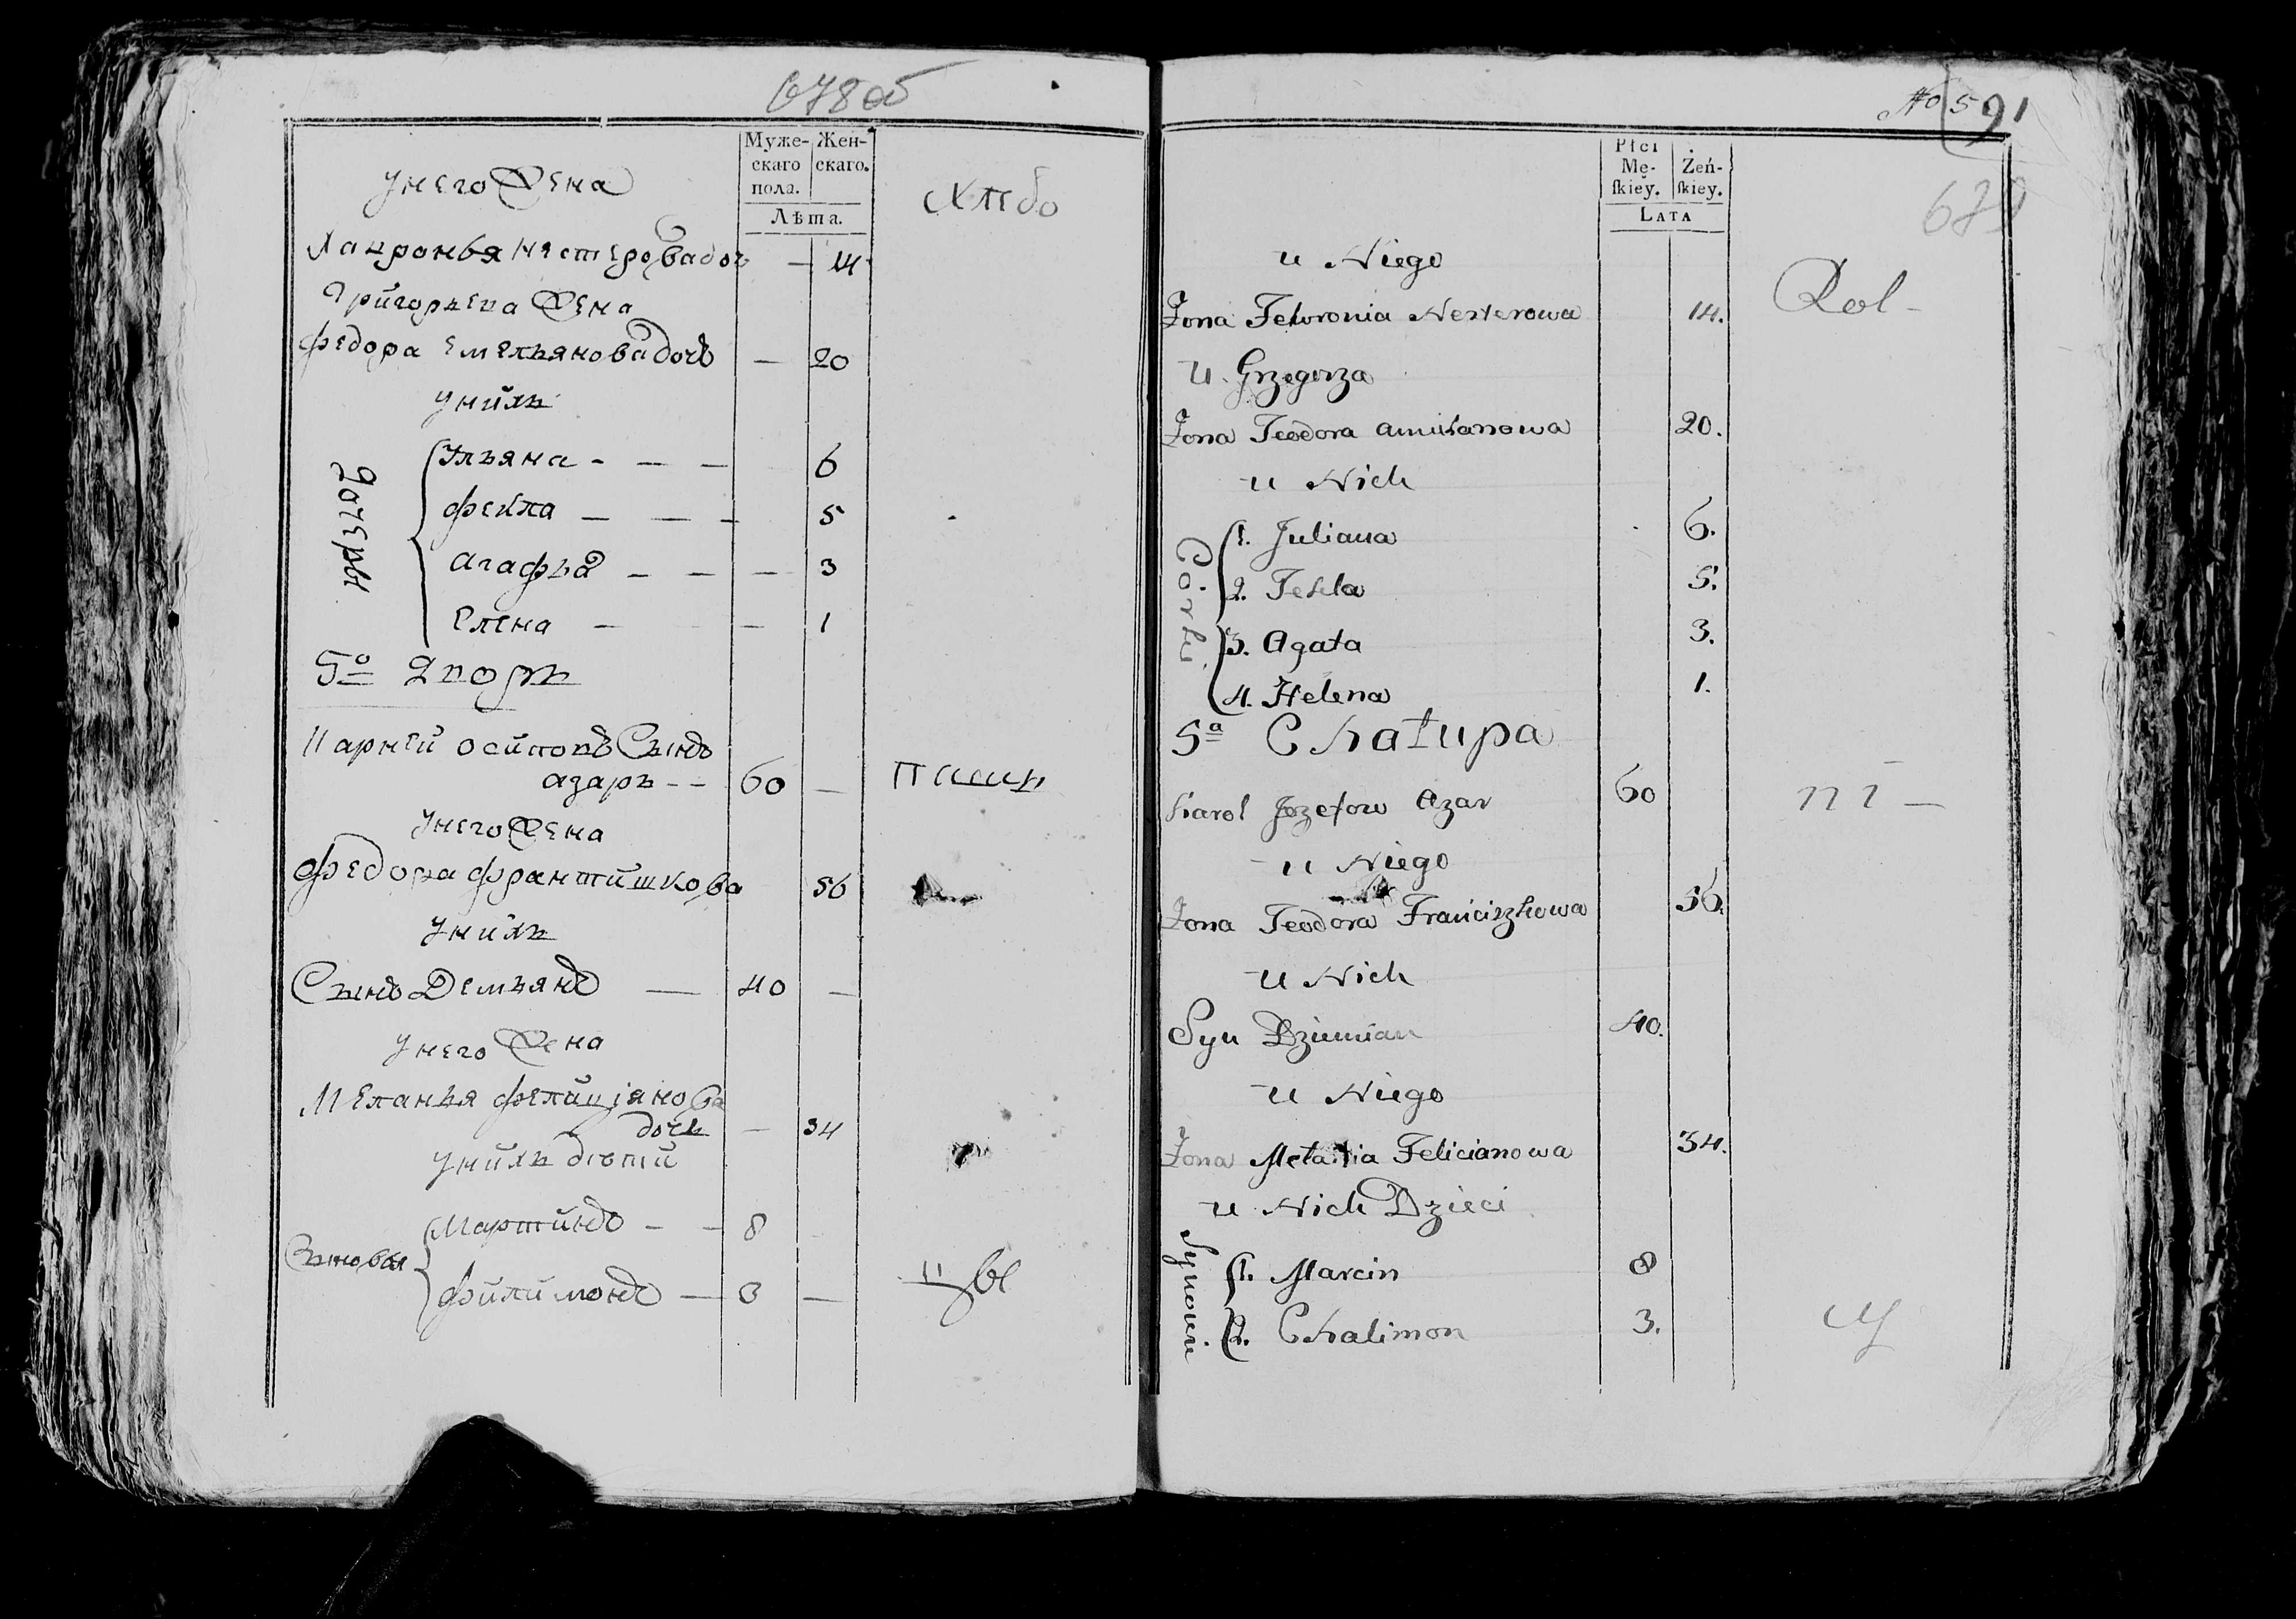 678об
Муже-
скаго
пола.
Жен-
скаго.
Лѣта.
у него Жена
хлебо
Нестерова доч — 14
Григорьева Жена
Федора Емельянова дочь — 20
у нихъ
дочери
Ульяна - — — 6
Фекла — — — 5
Агафья — — — 3
Елена — — 1
5о Дворъ
осиповъ Сынъ
азаръ - - 60 —
у него Жена
Федора Франтишкова 56
у нихъ
Сынъ Демьянъ — 40 —
у него Жена
Меланья Фелициянова
дочь — 34
у нихъ дѣти
Сыновья
Мартинъ — — 8
Филимонъ — 3 —
No 591
679
Płci
Mę-
skiey.
Żeń-
skiey.
LATA
u Niego
Zona Fewronia Nesterowa 14.
Rol-
u Grzegorza
Zona Teodora 20.
u Nich
Corki
1. Juliana 6.
2. Tekla 5.
3. Agata 3.
4. Helena 1.
5a Chałupa
Karol Jozefow Azar 60
u Niego
Zona Teodora Franciszkowa 56.
u Nich
Syn Dziemian 40.
u Niego
Zona Mełania Felicianowa 34.
u Nich Dzieci
Synowie
1. Marcin 8
2. Chalimon 3.